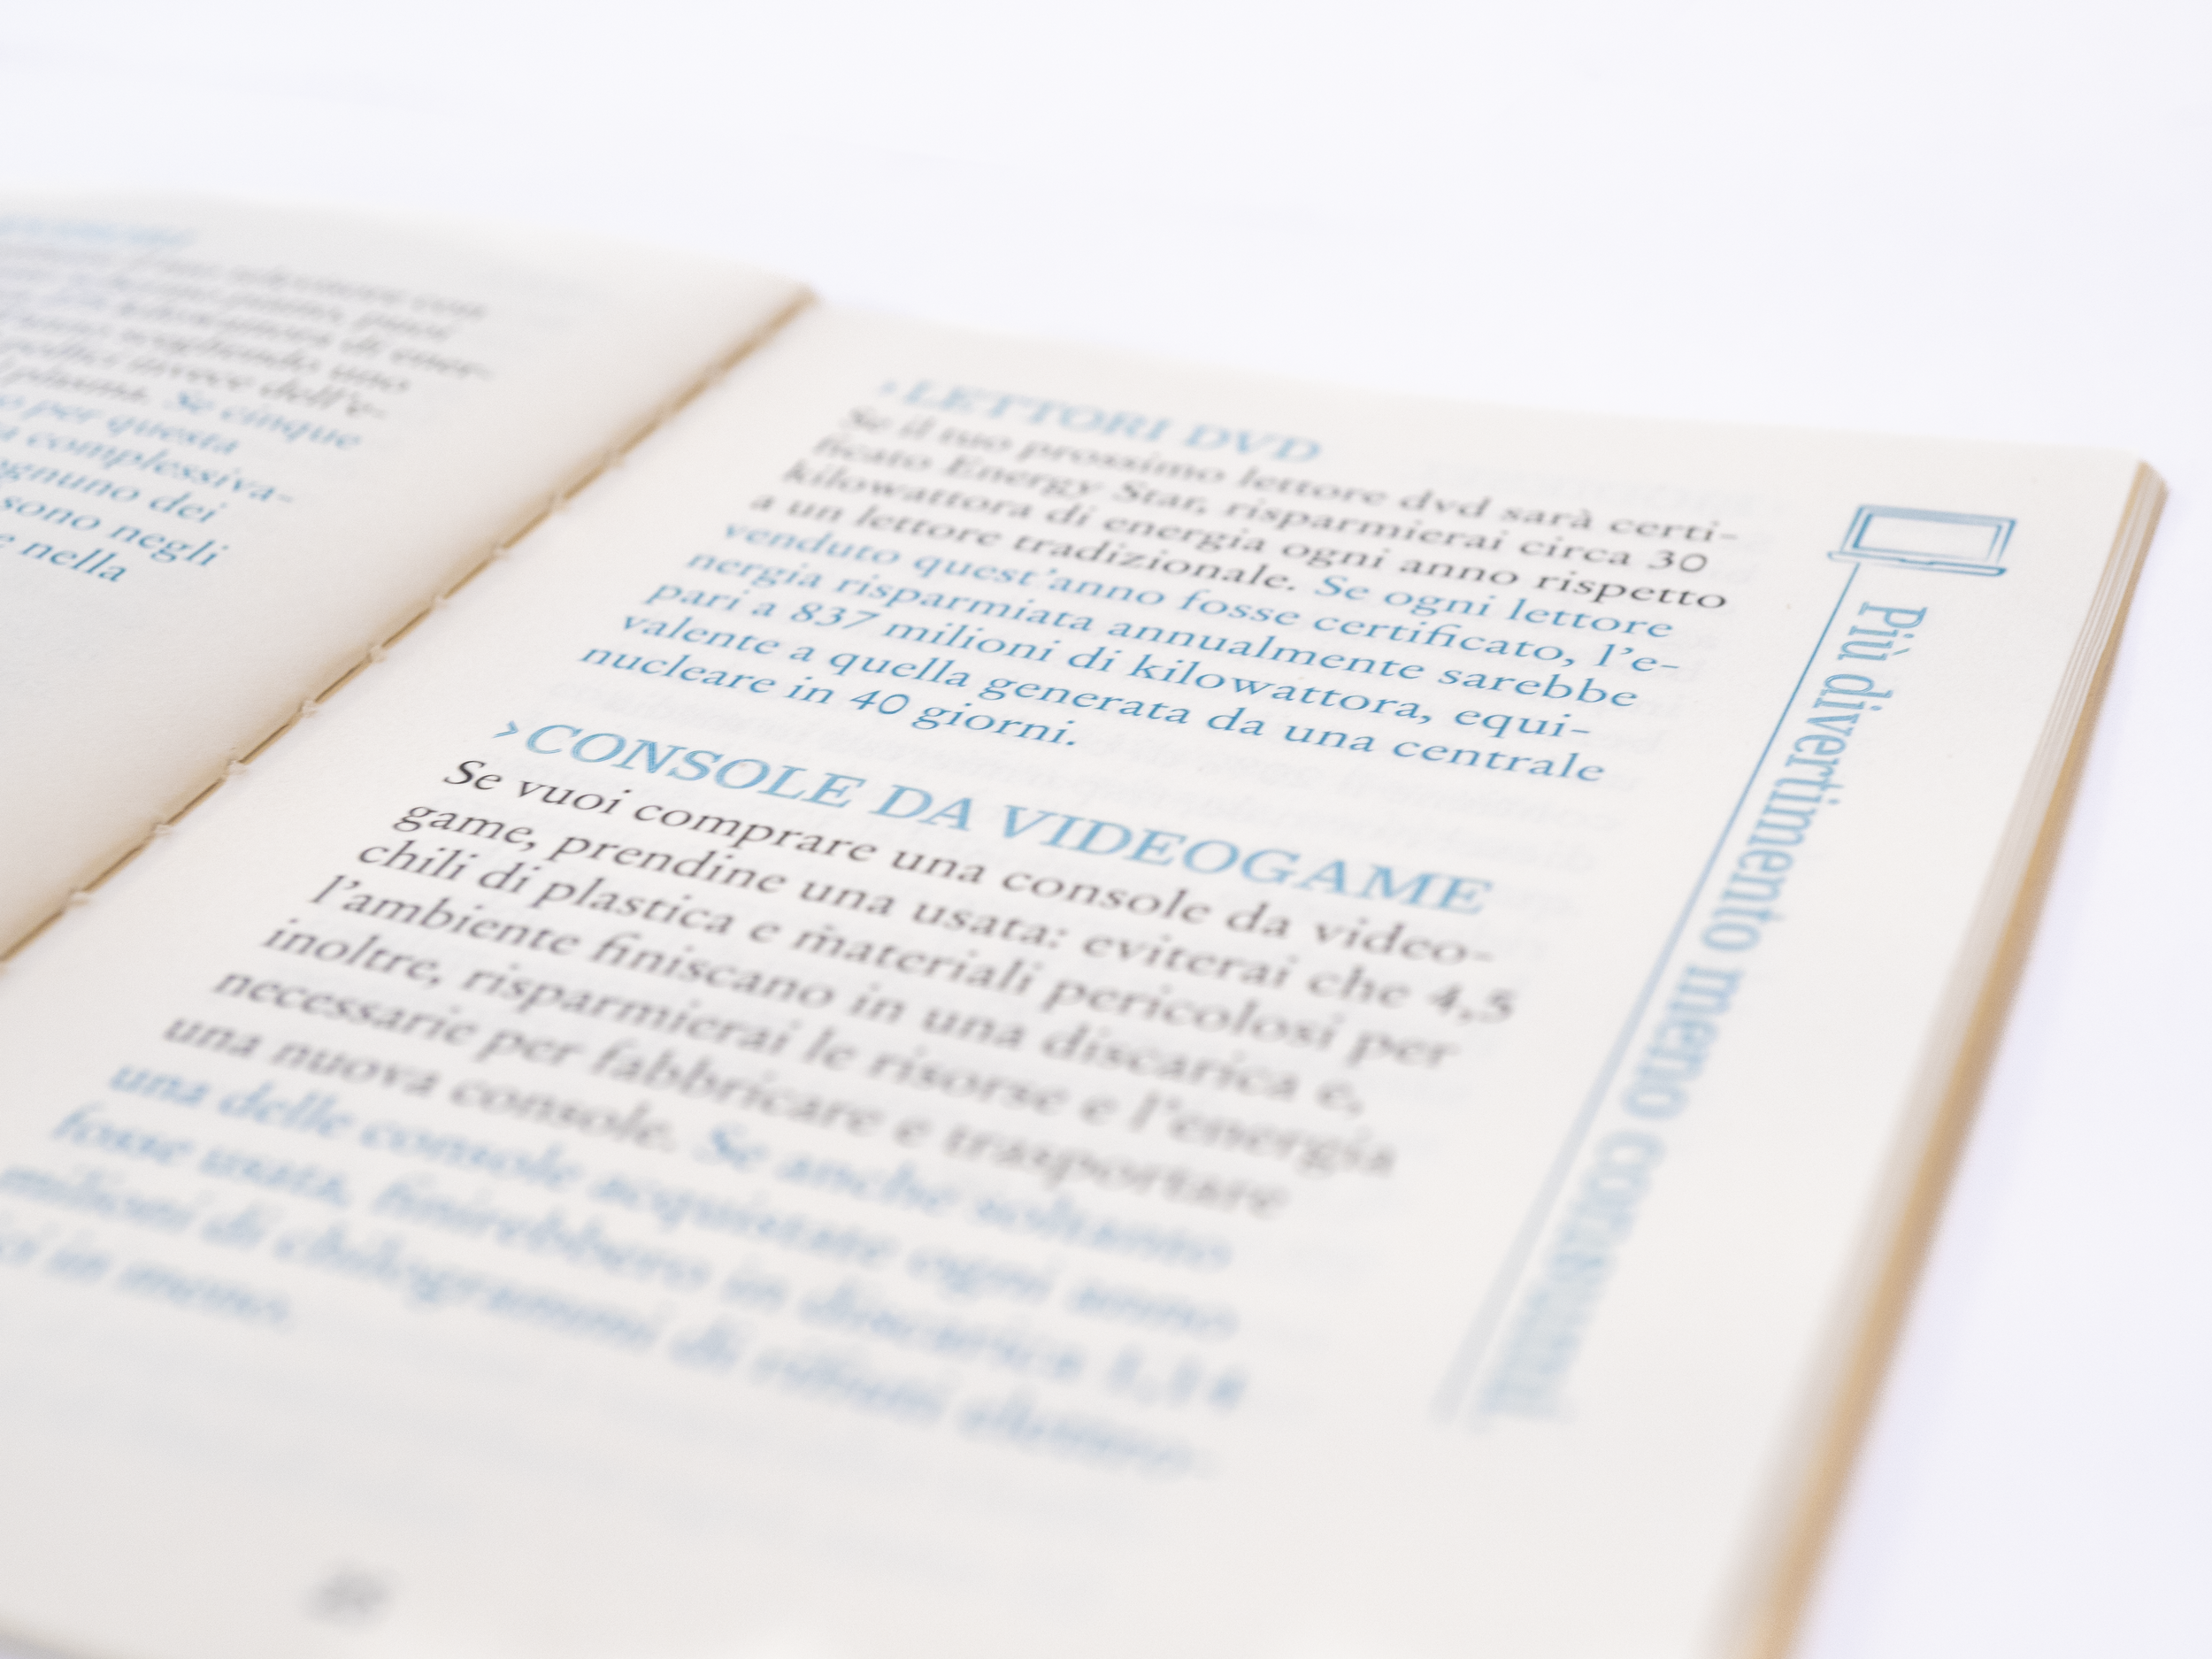 pollici invece dell'e-
plasma. Se cinque
per questa
complessiva-
ognuno dei
sono negli
e nella
›LETTORI DVD
Se il tuo prossimo lettore dvd sarà certi-
ficato Energy Star, risparmierai circa 30
kilowattora di energia ogni anno rispetto
a un lettore tradizionale. Se ogni lettore
venduto quest'anno fosse certificato, l'e-
nergia risparmiata annualmente sarebbe
pari a 837 milioni di kilowattora, equi-
valente a quella generata da una centrale
nucleare in 40 giorni.
›CONSOLE DA VIDEOGAME
Se vuoi comprare una console da video-
game, prendine una usata: eviterai che 4,5
chili di plastica e materiali pericolosi per
l'ambiente finiscano in una discarica e,
inoltre, risparmierai le risorse e l'energia
necessarie per fabbricare e trasportare
una nuova console. Se anche soltanto
una delle console acquistate ogni anno
fosse usata, finirebbero in discarica 1,14
milioni di chilogrammi di rifiuti elettro-
ci in meno.
Più divertimento meno consumi